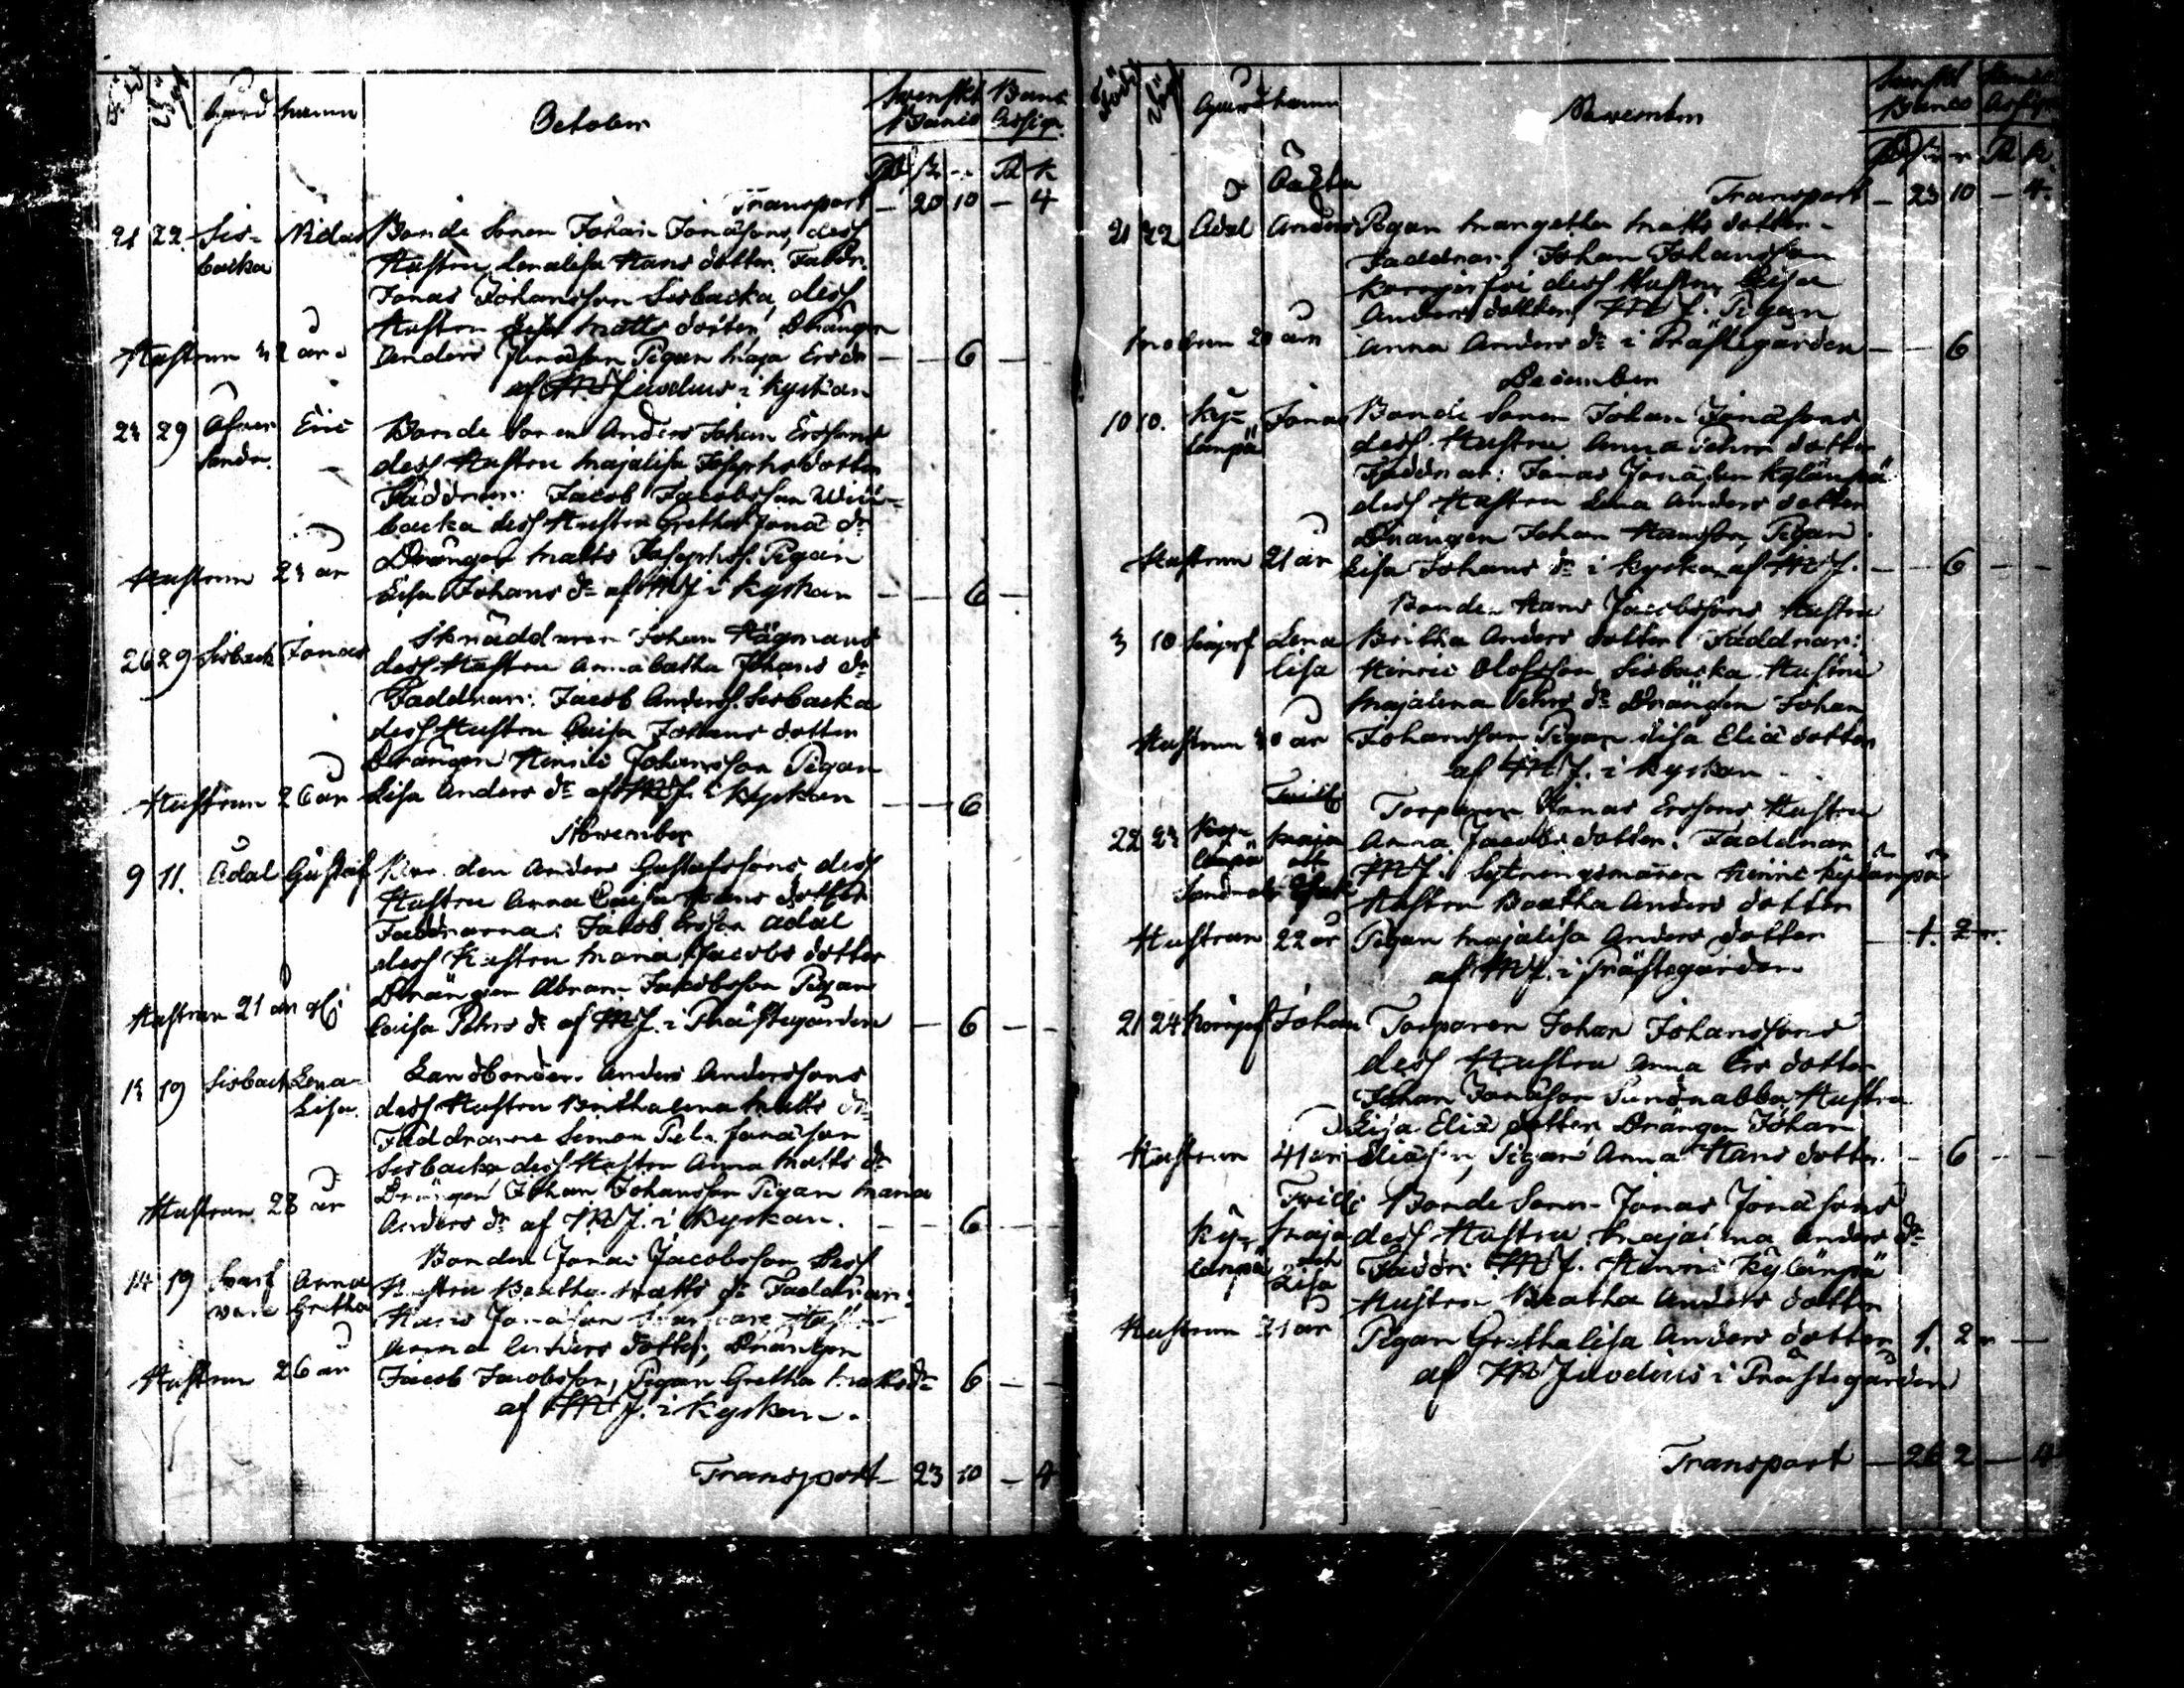 Gård namn October Svenskt Banco Banc Assign.
Rd ß r R k
Transport — 20 10 — 4
21 22 Sis- Nidas Bonde Sonen Johan Jonasons, dess
backa Hustru, Lenalisa Hans dotter. Faddr.
Jonas Johansson Sisbacka, dess
Hustru Lisa Matts dotter, Drängen
Hustrun 32 år Anders Jonasson Pigan Maja Ers dr — — 6 —
af MJ Juvelius i kyrkan
23 29 Eric Bonde Sonen Anders Johan Erssons
dess Hustru Majalisa Josephsdotter
Faddrar: Jacob Jacobsson Wiii-
backa dess Hustru Gretha Jona dr
Drängen Matts Josephs. Pigan
Hustrun 23 år Lisa Johans dr af MJ i kyrkan — — 6 —
Skräddaren Johan Hägmans
26 29 Sisback Jonas dess Hustru Annabatha Johans dr
Faddrar: Jacob Anders. Sisbacka
dess Hustru Caisa Johans dotter
Drängen Henric Johansson Pigan
Hustrun 26 år Lisa Anders dr af MJ. i kyrkan — — 6
November
9 11. Adal Gustaf Anders Gustafssons, dess
Hustru Anna Caisa Hans dotter
Faddrarna: Jacob Ersson Adal
dess Hustru Maria Jacobs dotter
Drängen Abram Jacobsson Pigan
Hustrun 21 år Caisa Pehrs dr af MJ. i Prästegården — 6 — —
Landbonden Anders Anderssons
13 19 Sisback Lena dess Hustru Brithalena Matts dr
Lisa. Faddrarne Simon Jonasson
Sisbacka dess Hustru Anna Matts dr
Drängen Johan Johansson Pigan Maria
Hustrun 28 år Anders dr af MJ. i kyrkan. — — 6 —
Bonden Jonas Jacobsson dess
14 19 Anna Hustru Beatha Matts dr Faddrar:
Gretha Hans Jonasson
Anna Anders dotter, Drängen
Hustrun 26 år Jacob Jacobsson, Pigan Gretha Matts dr 6 — —
af MJ. i kyrkan.
Transport — 23 10 — 4
Gård namn November Svenskt Banco Assign.
Oäkta Transport — 23 10 — 4
21 22 Adal Anders Pigan Margetha Matts dotter
Faddrar, Johan Johansson
dess Hustru, Caisa
Anders dotter, MJ. Pigan
Modren 20 år Anna Anders dr i Prästegården — — 6
December
10 10. Ky- Jonas Bonde Sonen Johan Jonasons
länpä dess Hustru Anna Pehrs dotter
Faddrar: Jonas Jonasson Kylänpä
dess Hustru Lena Anders dotter
Drängen Johan Hansson, Pigan
Hustrun 21 år Lisa Johans dr i kyrkan af MJ. — — 6 — —
Bonden Hans Jacobssons Hustru
3 10 Lena Britha Anders dotter Faddrar:
Lisa Henric Olofsson Sisbacka Hustru
Majalena Pehrs dr Drängen Johan
Hustrun 40 år Johansson Pigan Lisa Elia dotter
af MJ. i kyrkan
Tvill. Torparen Jonas Erssons Hustru
22 23 Ky- Maja Anna Jacobs dotter. Faddrar
länpä och MJ. Sytningsmannen Henric Kylänpä
Isak Hustru Beatha Anders dotter
Hustrun 22 år Pigan Majalisa Anders dotter — 1. 2
af MJ. i Prästegården
21 24 Johan Torparen Johan Johanssons
dess Hustru Anna Ers dotter
Johan Jonasson Hustru
Lisa Elia dotter, Drängen Johan
Hustrun 41 år Eliasson, Pigan Anna Hans dotter. — 6 — —
Tvill. Bonde Sonen Jonas Jonasons
Ky- Maja dess Hustru Majalena Anders dr
länpä och Faddr. MJ. Henric Kylänpä
Lisa Hustru Beatha Anders dotter
Hustrun 21 år Pigan Grethalisa Anders dotter 1. 2 —
af MJ Juvelius i Prästegården
Transport — 26 2 — 4